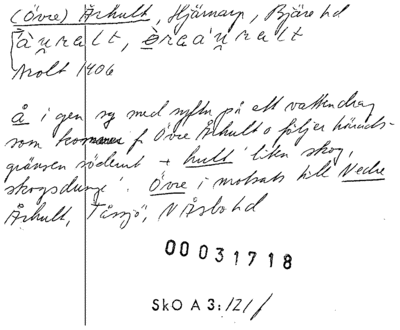 (Övre) Århult, Hjärnarp, Bjäre hd
Arolt 1406
å i gen sg med syftn på ett vattendrag
som kommer f Övre Århult o följer härads-
gränsen söderut + hult 'liten skog,
skogsdunge'. Övre i motsats till Nedre
Århult, Tåssjö, N Åsbo hd
00031718
SkO A3:121/